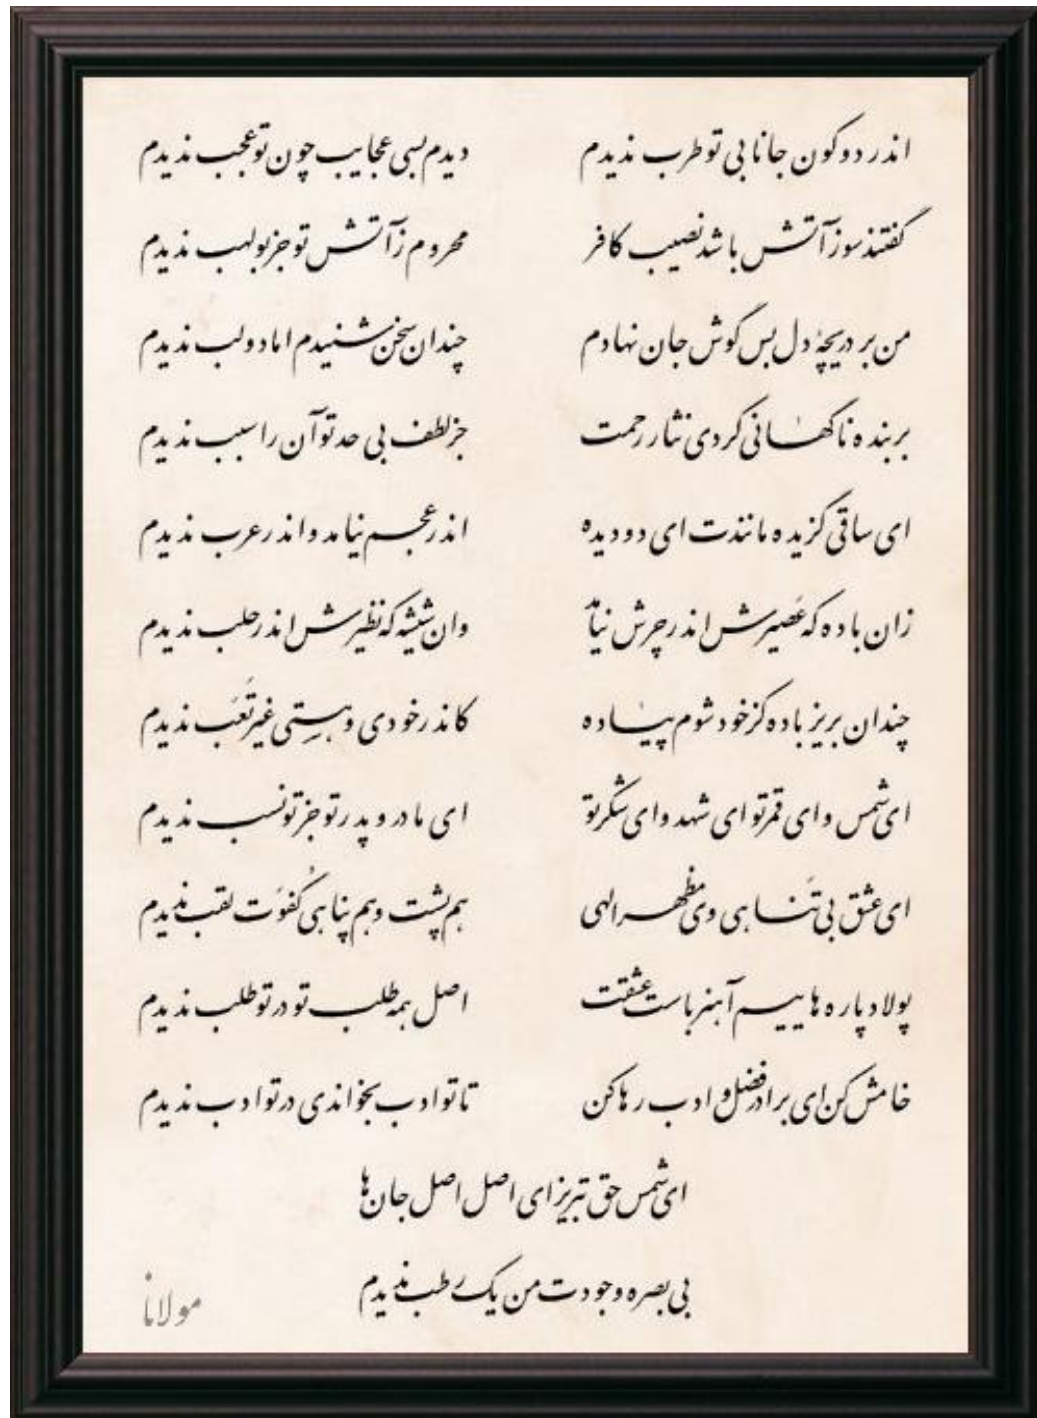 اندر دو کون جانا بی تو طرب ندیدم دیدم بسی عجایب چون تو عجب ندیدم
گفتند سوز آتش باشد نصیب کافر محروم ز آتش تو جز بولهب ندیدم
من بر دریچهٔ دل بس گوش جان نهادم چندان سخن شنیدم اما دو لب ندیدم
بر بنده ناگهانی کردی نثار رحمت جز لطف بی حد تو آن را سبب ندیدم
ای ساقی گزیده مانندت ای دو دیده اندر عجم نیامد و اندر عرب ندیدم
زان باده که عَصیرش اندر چرش نیامد وان شیشه که نظیرش اندر حلب ندیدم
چندان بریز باده کز خود شوم پیاده کاندر خودی و هستی غیر تَعَب ندیدم
ای شمس و ای قمر تو ای شهد و ای شکر تو ای مادر و پدر تو جز تو نسب ندیدم
ای عشق بی تَناهی وی مظهر الهی هم پشت و هم پناهی کُفوَت لقب ندیدم
پولاد پاره هاییم آهنرباست عشقت اصل همه طلب تو در تو طلب ندیدم
خامش کن ای برادر فضل و ادب رها کن تا تو ادب بخواندی در تو ادب ندیدم
ای شمس حق تبریز ای اصل اصل جان ها
بی بصره وجودت من یک رطب ندیدم
مولانا